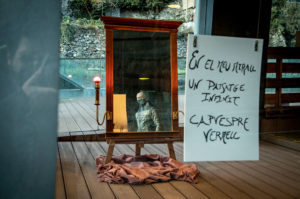 EN EL MEU MIRALL
UN PAISATGE
INFINIT
CAPVESPRE
VERMELL